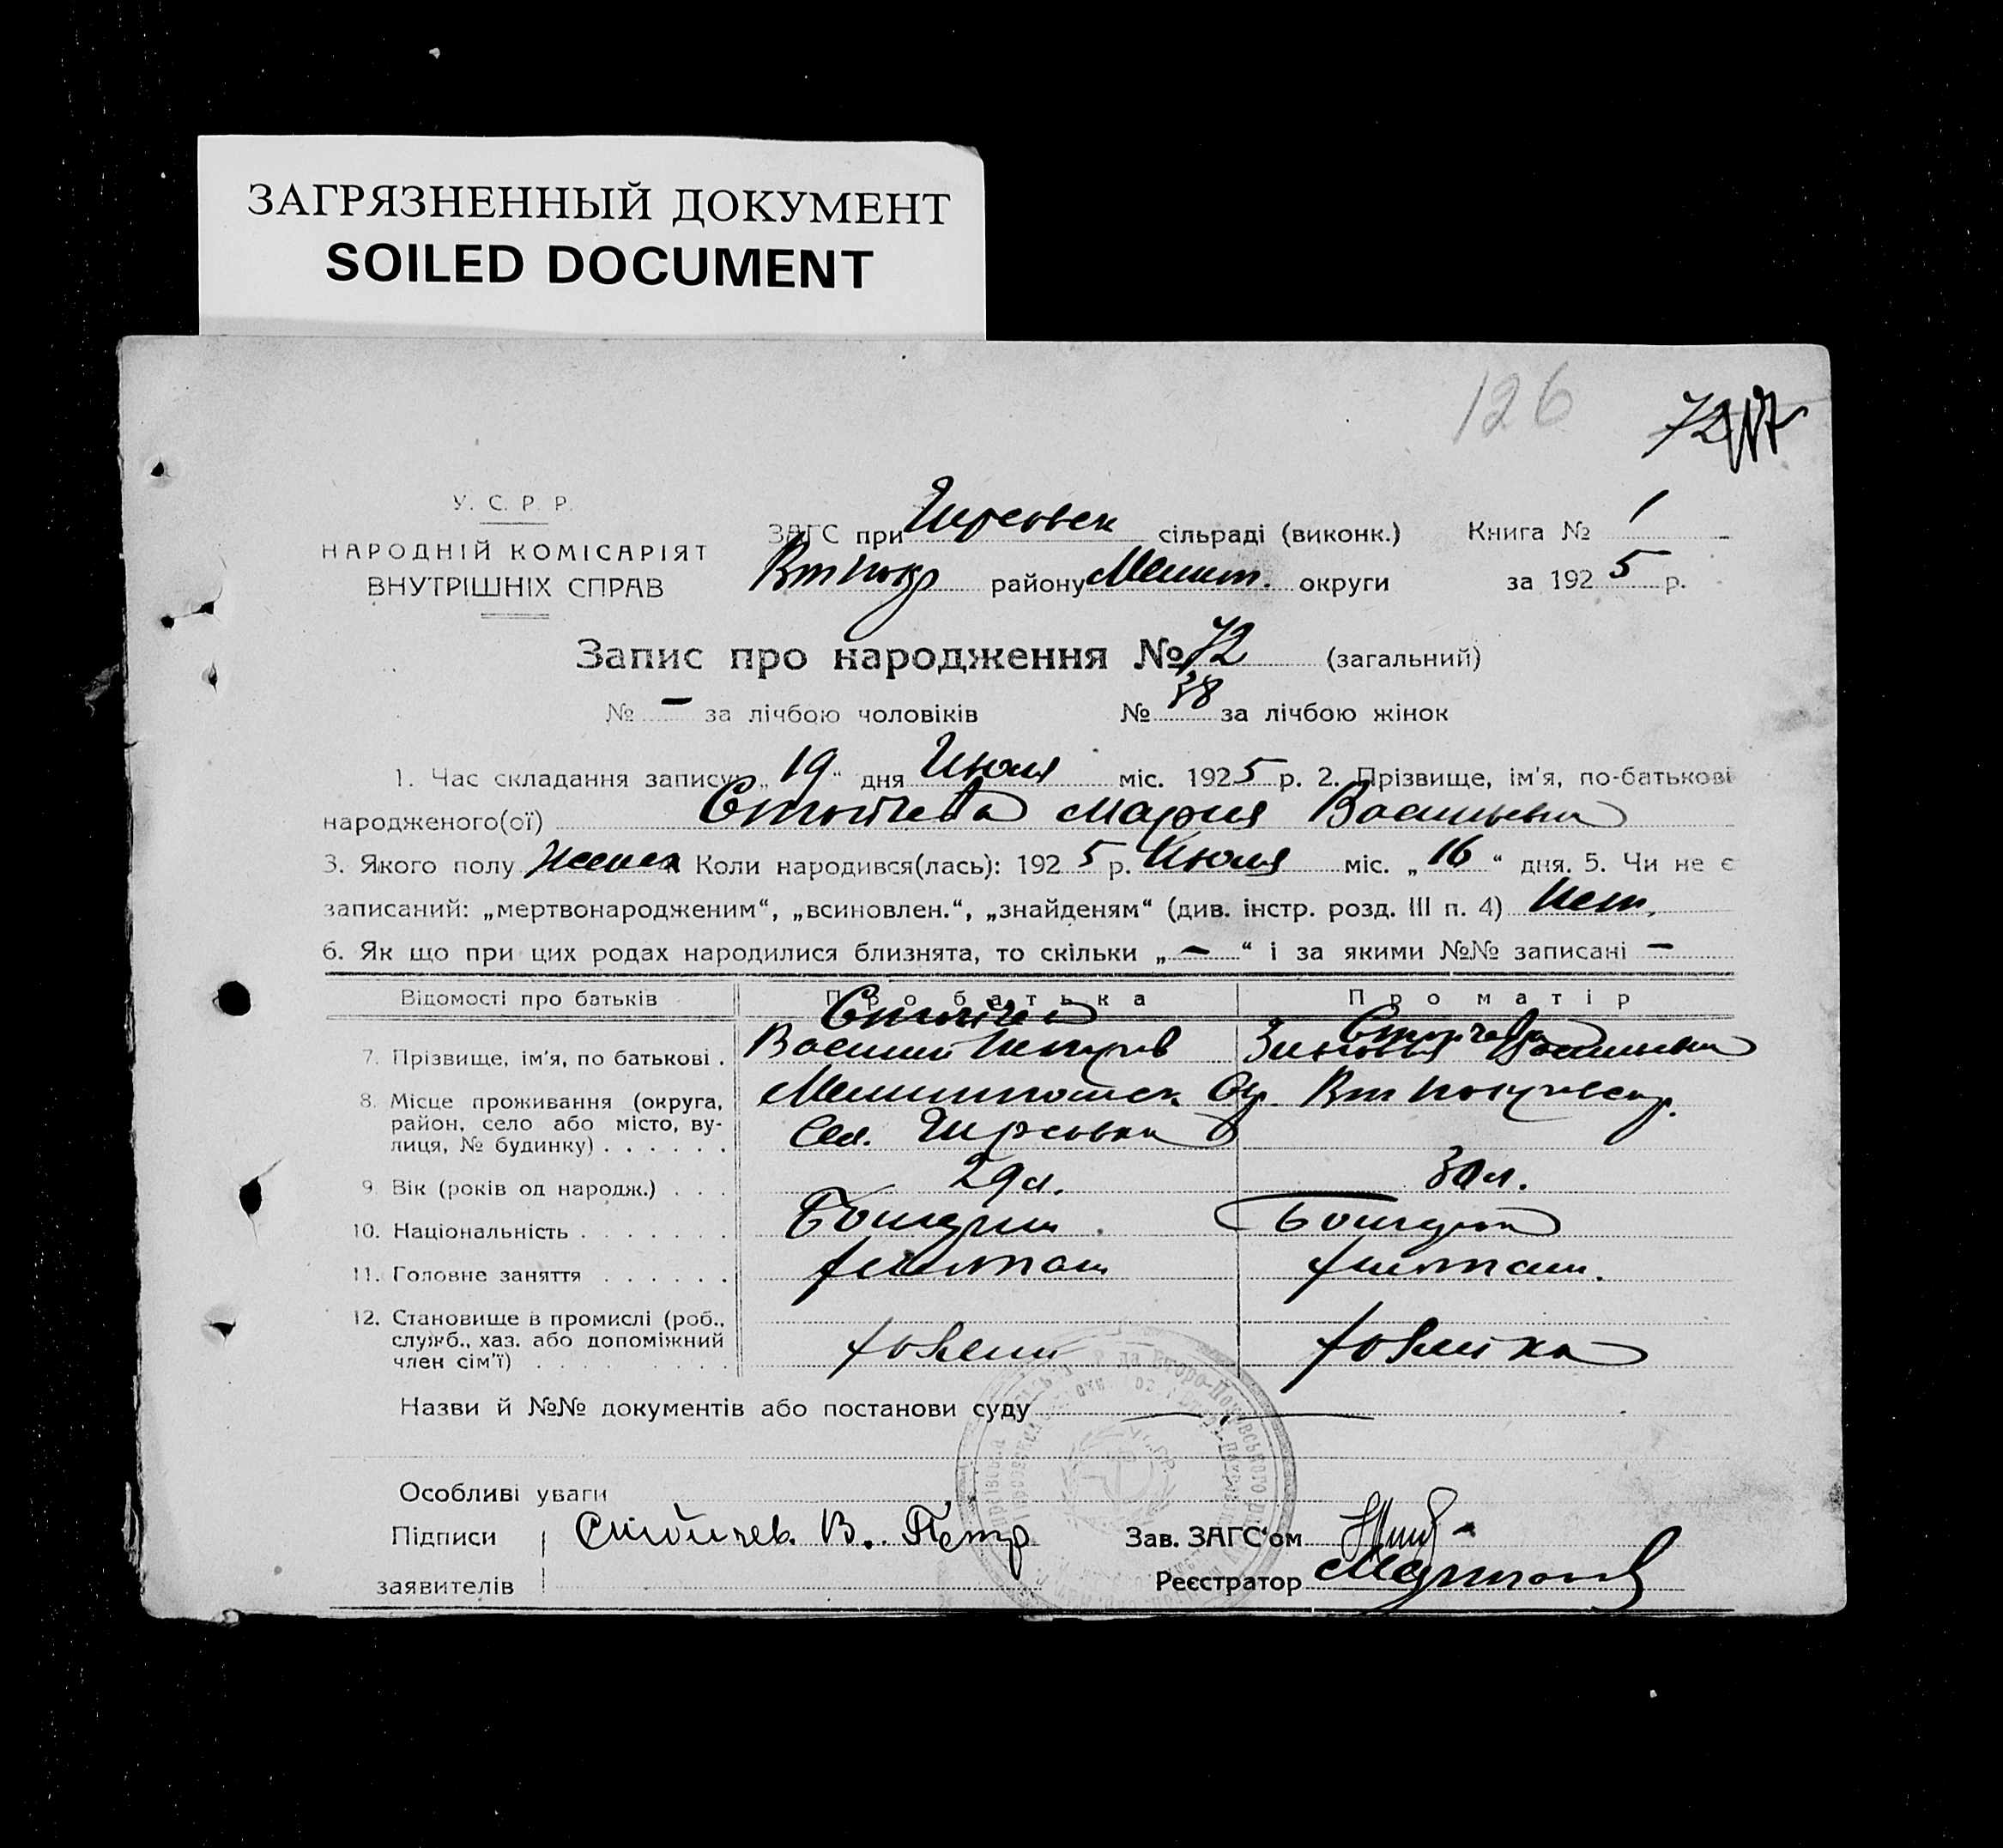 ЗАГРЯЗНЕННЫЙ ДОКУМЕНТ
SOILED DOCUMENT
126
72
У. С. Р. Р.
НАРОДНІЙ КОМІСАРІЯТ
ВНУТРІШНІХ СПРАВ
ЗАГС при Гирсовск сільраді (виконк.) Книга № 1
Вт Покр району Мелит. округи за 1925 р.
Запис про народження № 72 (загальний)
№ – за лічбою чоловіків № 38 за лічбою жінок
1. Час складання запису „19“ дня Июля міс. 1925 р. 2. Прізвище, ім'я, по-батькові
народженого(ої) Стойчева Мария Васильевна
3. Якого полу Женск Коли народився(лась): 1925 р. Июля міс. „16“ дня. 5. Чи не є
записаний: „мертвонародженим“, „всиновлен.“, „знайденям“ (див. інстр. розд. III п. 4) Нет.
6. Як що при цих родах народилися близнята, то скільки „–“ і за якими №№ записані –
Відомості про батьків Про батька Про матір
Стойчев Стойчева
7. Прізвище, ім'я, по батькові . Василий Петров Зиновья Васильевна
8. Місце проживання (округа, район, село або місто, вулиця, № будинку) . . . . . . Мелитопольск. Окр. Вт Покровск р.
Сел. Гирсовка
9. Вік (років од народж.) . . . 29 л. 30 л.
10. Національність . . . . . . . Болгрин Болгрка
11. Головне заняття . . . . . . хлебопаш хлебопаш.
12. Становище в промислі (роб., служб., хаз. або допоміжний член сім'ї) . . . . . . хозяин хозяйка
Назви й №№ документів або постанови суду
Особливі уваги
Підписи Стойчев. В. Петр
Зав. ЗАГС'ом
заявителів
Реєстратор